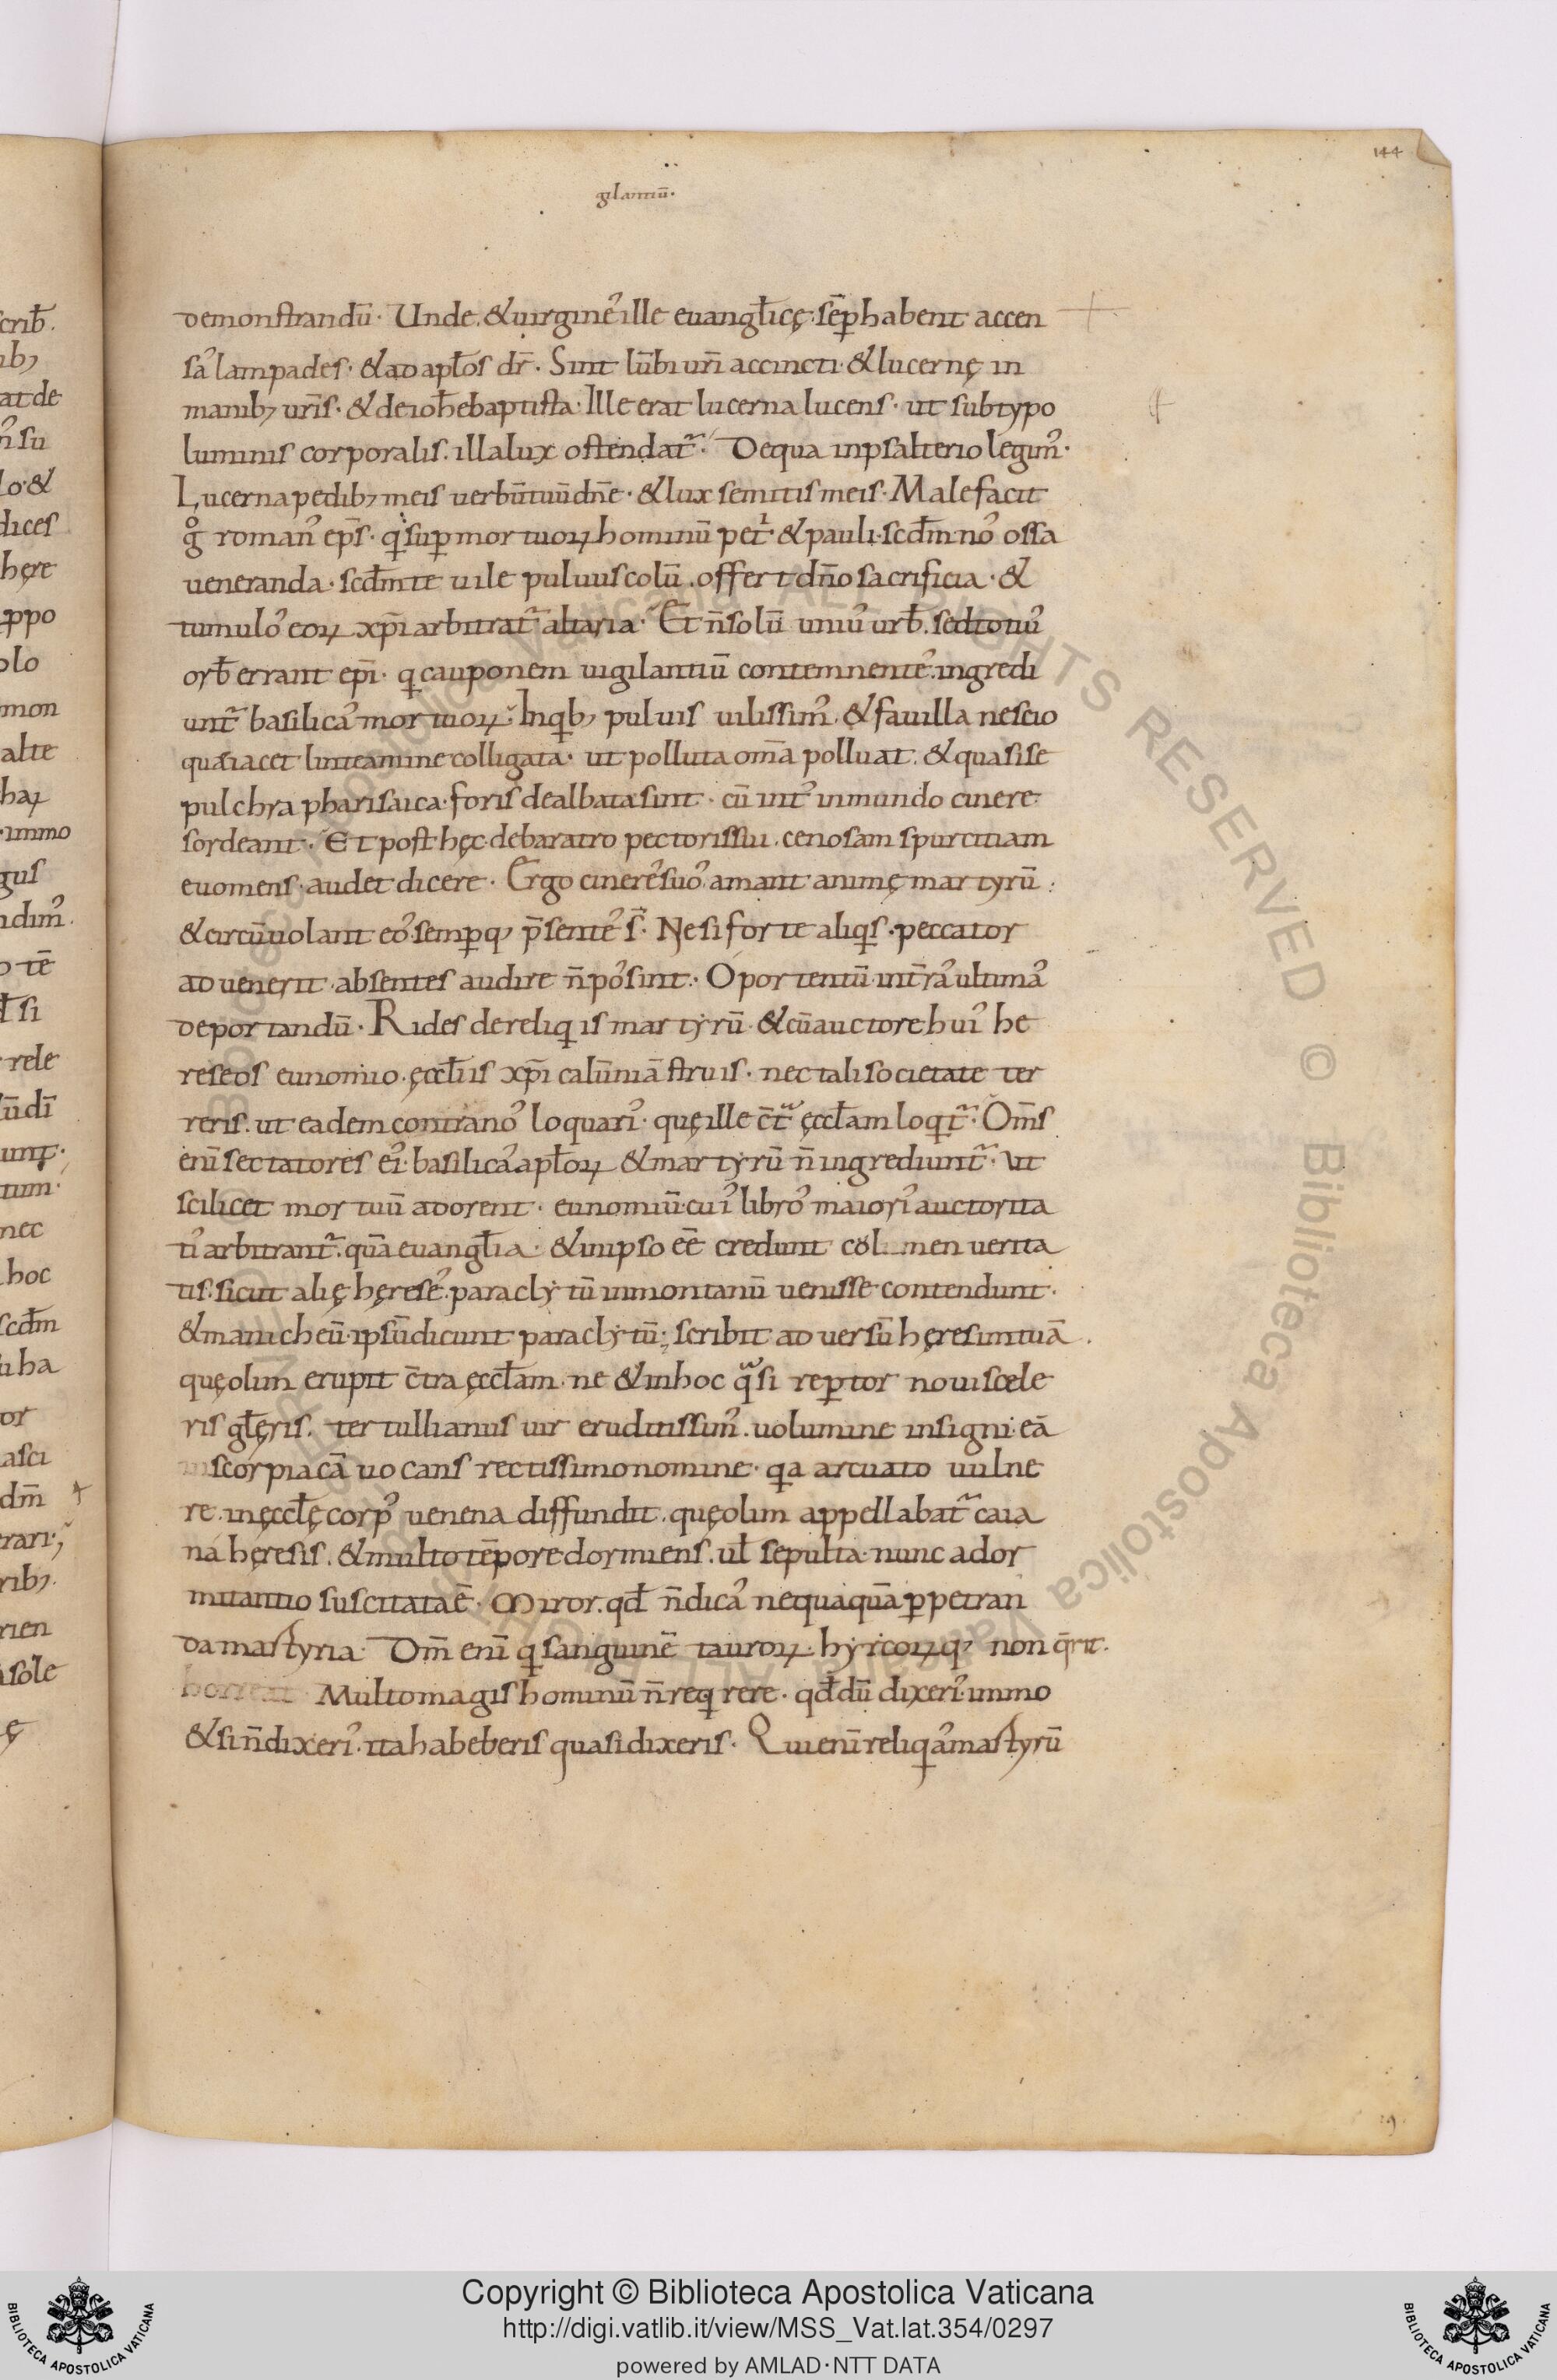 144
gilantiū·
demonstrandū· Unde·&uirgineᷣ ille euangłicę·sēp habent accen
saᷣ lampades· &ad apłos dr̄· Sint lūbi ur̄i accincti·&lucernę in
manib; ur̄is·&deioħebaptista·Ille erat lucerna lucens· ut subtypo
luminis corporalis·illalux ostendat᷑· Dequa inpsalterio legim᷒·
Lucernapedib; meis uerbūtuūdn̄e·&lux semitis meis·Malefacit
gͦ roman᷒ ep̄s· qͥ sup mortuoꝝ hominū petͥ·&pauli·scđm no᷒ ossa
ueneranda·scđmte uile puluuscolū·offert dn̄o sacrificia·&
tumulo᷒ eoꝝ xp̄i arbitrat᷑ altaria· Et n̄solū uniu᷒ urƀ·sedtotiu᷒
orƀ errant ep̄i· q cauponem uigilantiū contemnente᷒·ingredi
unt᷑ basilica᷒ mortuoꝝ· Inqb; puluis uilissim᷒·&fauilla nescio
quaiacet linteamine colligata· ut polluta om̄a polluat·&quasise
pulchra pharisaica·foris dealbata sint· cū int᷒ inmundo cinere
sordeant· Et post hęc debaratro pectorissui·cenosam spurcitiam
euomens·audet dicere· Ergo cinere᷒ suo᷒ amant animę martyrū:
&circūuolant eo᷒ semꝑq; p̄sente᷒ s̄· Ne si forte aliqis·peccator
aduenerit·absentes audire n̄ po᷒sint· O portentū int̄ra᷒ ultima᷒
deportandū· Rides dereliqis martẏrū·&cūauctore hui᷒ he
reseos eunomio·ęccłiis xp̄i calūniā struis· nec tali societate ter
reris·ut eadem contra no᷒ loquari᷒· quęille c̄t᷑ ęccłam loqt᷑· Om̄s
enī sectatores ei᷒·basilica᷒ apłoꝝ &martẏrū n̄ ingrediunt᷑· Ut
scilicet mortuū adorent· eunomiū·cui᷒ libro᷒ maiori᷒ auctorita
ti᷒ arbitrant᷑·quā euangłia· &inipso eē credunt col men uerita
tis·sicut alię hęrese᷒·paraclẏtū inmontanū uenisse contendunt·
&manicheū·ipsūdicunt paraclẏtū· scribit aduersū hęresimtuā
quęolim erupit c̄tra ęccłam·ne &inhoc qᷓsi reꝑtor noui scele
ris głęris· tertullianus uir eruditissim᷒·uolumine insigni·eā
scorpiacā uocans rectissimo nomine· qa arcuato uulne
re·inęccłęcorp᷒ uenena diffundit·quęolim appellabat᷑ caia
na hęresis·&multo tēpore dormiens·uł sepulta·nunc ador
mitantio suscitataē· Miror·qđ n̄dica᷒ nequaquā ꝑpetran
da martyria· Dm̄ enī q sanguinē tauroꝝ·hẏrcoꝝq; non q̄rit·
Multomagis hominū n̄ reqrere· qđdū dixeri᷒·immo
&sin̄dixeri᷒·itahabeberis quasidixeris· Qui enī reliqa᷒ martyrū
Copyright © Biblioteca Apostolica Vaticana
http://digi.vatlib.it/view/MSS_Vat.lat.354/0297
powered by AMLAD·NTT DATA